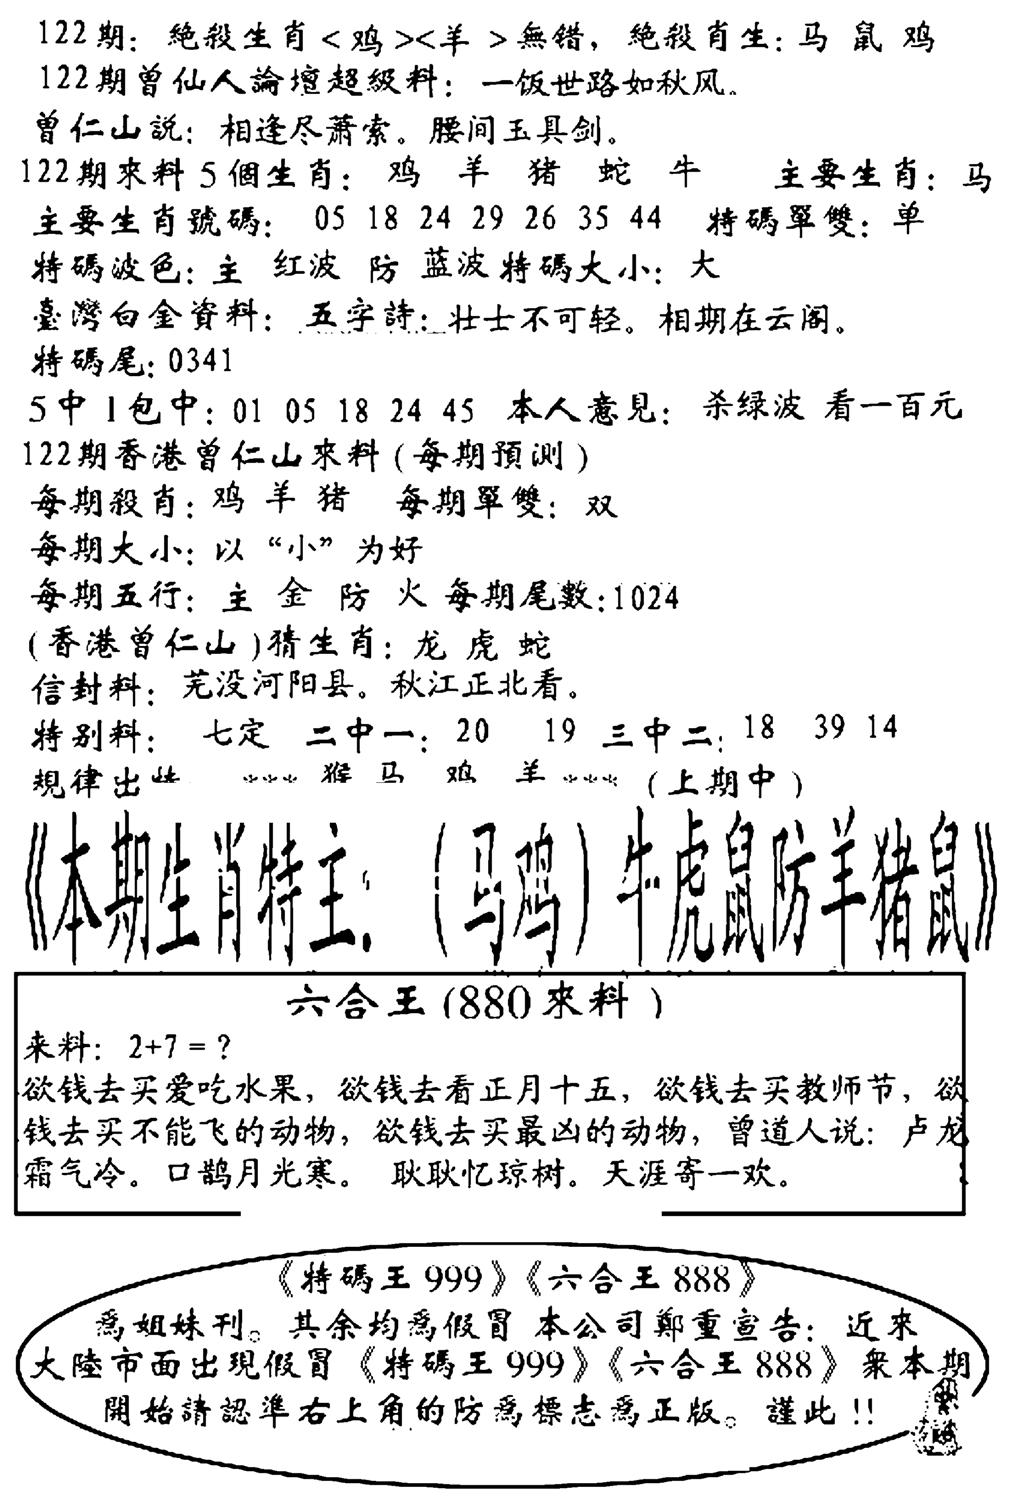 122期：絶殺生肖<鸡><羊 >無错，絶殺肖生：马 鼠 鸡
122期曾仙人論壇超級料：一饭世路如秋风。
曾仁山説：相逢尽萧索。腰间玉具剑。
122期來料5個生肖：鸡 羊 猪 蛇 牛 主要生肖：马
主要生肖號碼：05 18 24 29 26 35 44 特碼單雙：单
特碼波色：主 红波 防 蓝波 特碼大小：大
臺灣白金資料：五字詩：壮士不可轻。相期在云阁。
特碼尾：0341
5中1包中：01 05 18 24 45 本人意見：杀绿波 看一百元
122期香港曾仁山來料(每期預测)
每期殺肖：鸡 羊 猪 每期單雙：双
每期大小：以“小”为好
每期五行：主 金 防 火 每期尾數：1024
(香港曾仁山)猜生肖：龙 虎 蛇
信封料：芜没河阳县。秋江正北看。
特别料：七定 二中一：20 19 三中二：18 39 14
規律出特： *** 猴 马 鸡 羊 *** (上期中)
《本期生肖特主：(马鸡)牛虎鼠防羊猪鼠》
六合王(880來料)
来料：2+7=?
欲钱去买爱吃水果，欲钱去看正月十五，欲钱去买教师节，欲
钱去买不能飞的动物，欲钱去买最凶的动物，曾道人说：卢龙
霜气冷。口鹊月光寒。 耿耿忆琼树。天涯寄一欢。
《特碼王999》《六合王888》
爲姐妹刊。其余均爲假冒 本公司鄭重宣告：近來
大陸市面出現假冒《特碼王999》《六合王888》衆本期
開始請認準右上角的防爲標志爲正版。謹此!!